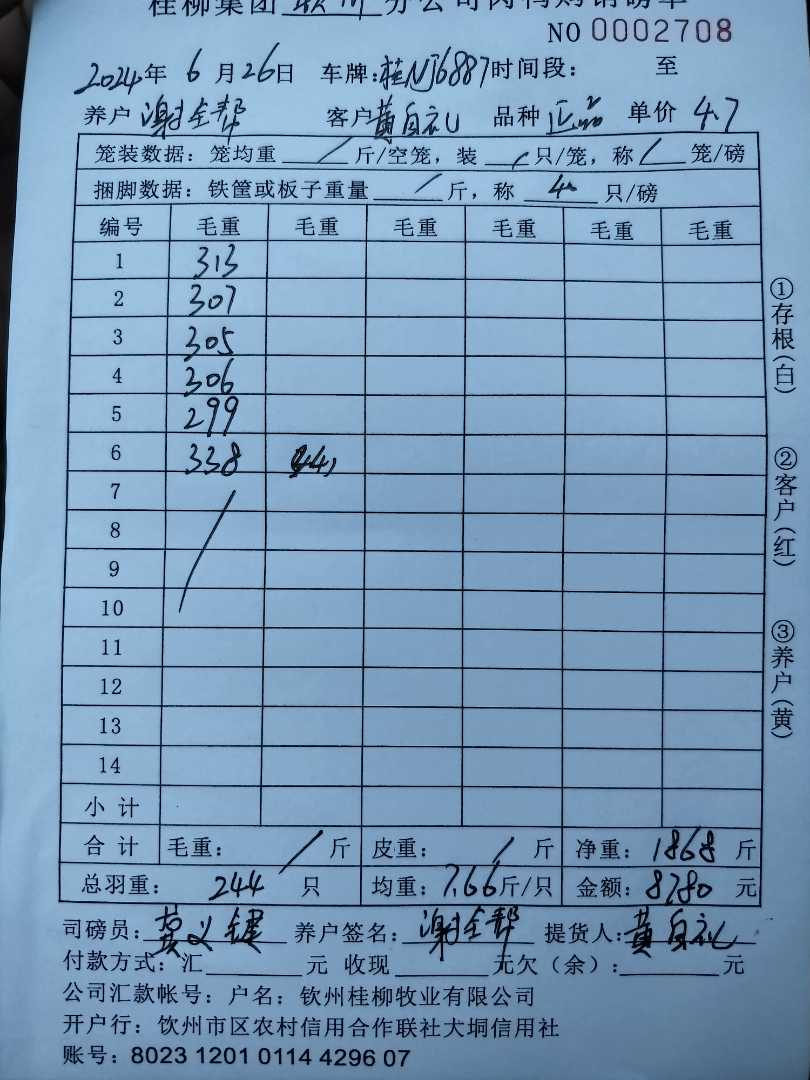 桂柳集团 钦州 分公司肉鸭购销磅单
NO 0002708
2024年 6 月 26日 车牌:桂NJ6887时间段: 至
养户 谢全帮 客户 黄自礼 品种 正品 单价 4.7
笼装数据: 笼均重 / 斤/空笼, 装 / 只/笼, 称 / 笼/磅
捆脚数据: 铁筐或板子重量 / 斤, 称 40 只/磅
编号 毛重 毛重 毛重 毛重 毛重 毛重
1 313
2 307
3 305
4 306
5 299
6 338 44
7
8
9
10
11
12
13
14
小 计
合 计 毛重: / 斤 皮重: / 斤 净重: 1868 斤
总羽重: 244 只 均重: 7.66斤/只 金额: 8780 元
司磅员: 莫义键 养户签名: 谢全帮 提货人: 黄自礼
付款方式: 汇 元 收现 元欠(余): 元
公司汇款帐号: 户名: 钦州桂柳牧业有限公司
开户行: 饮州市区农村信用合作联社犬垌信用社
账号: 8023 1201 0114 4296 07
①存根(白)
②客户(红)
③养户(黄)